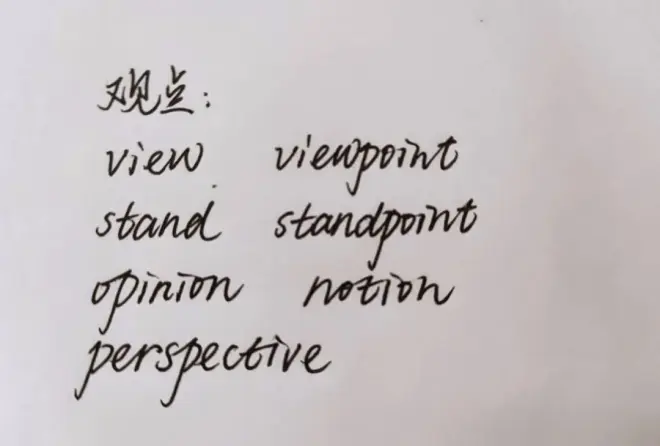 观点：
view viewpoint
stand standpoint
opinion notion
perspective